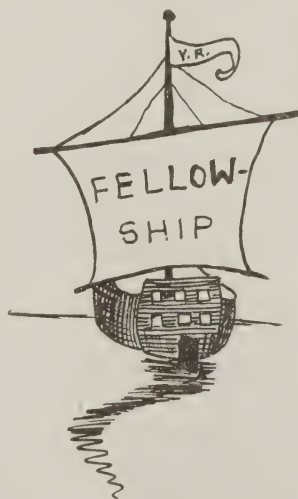 Y.R.
FELLOW-
SHIP